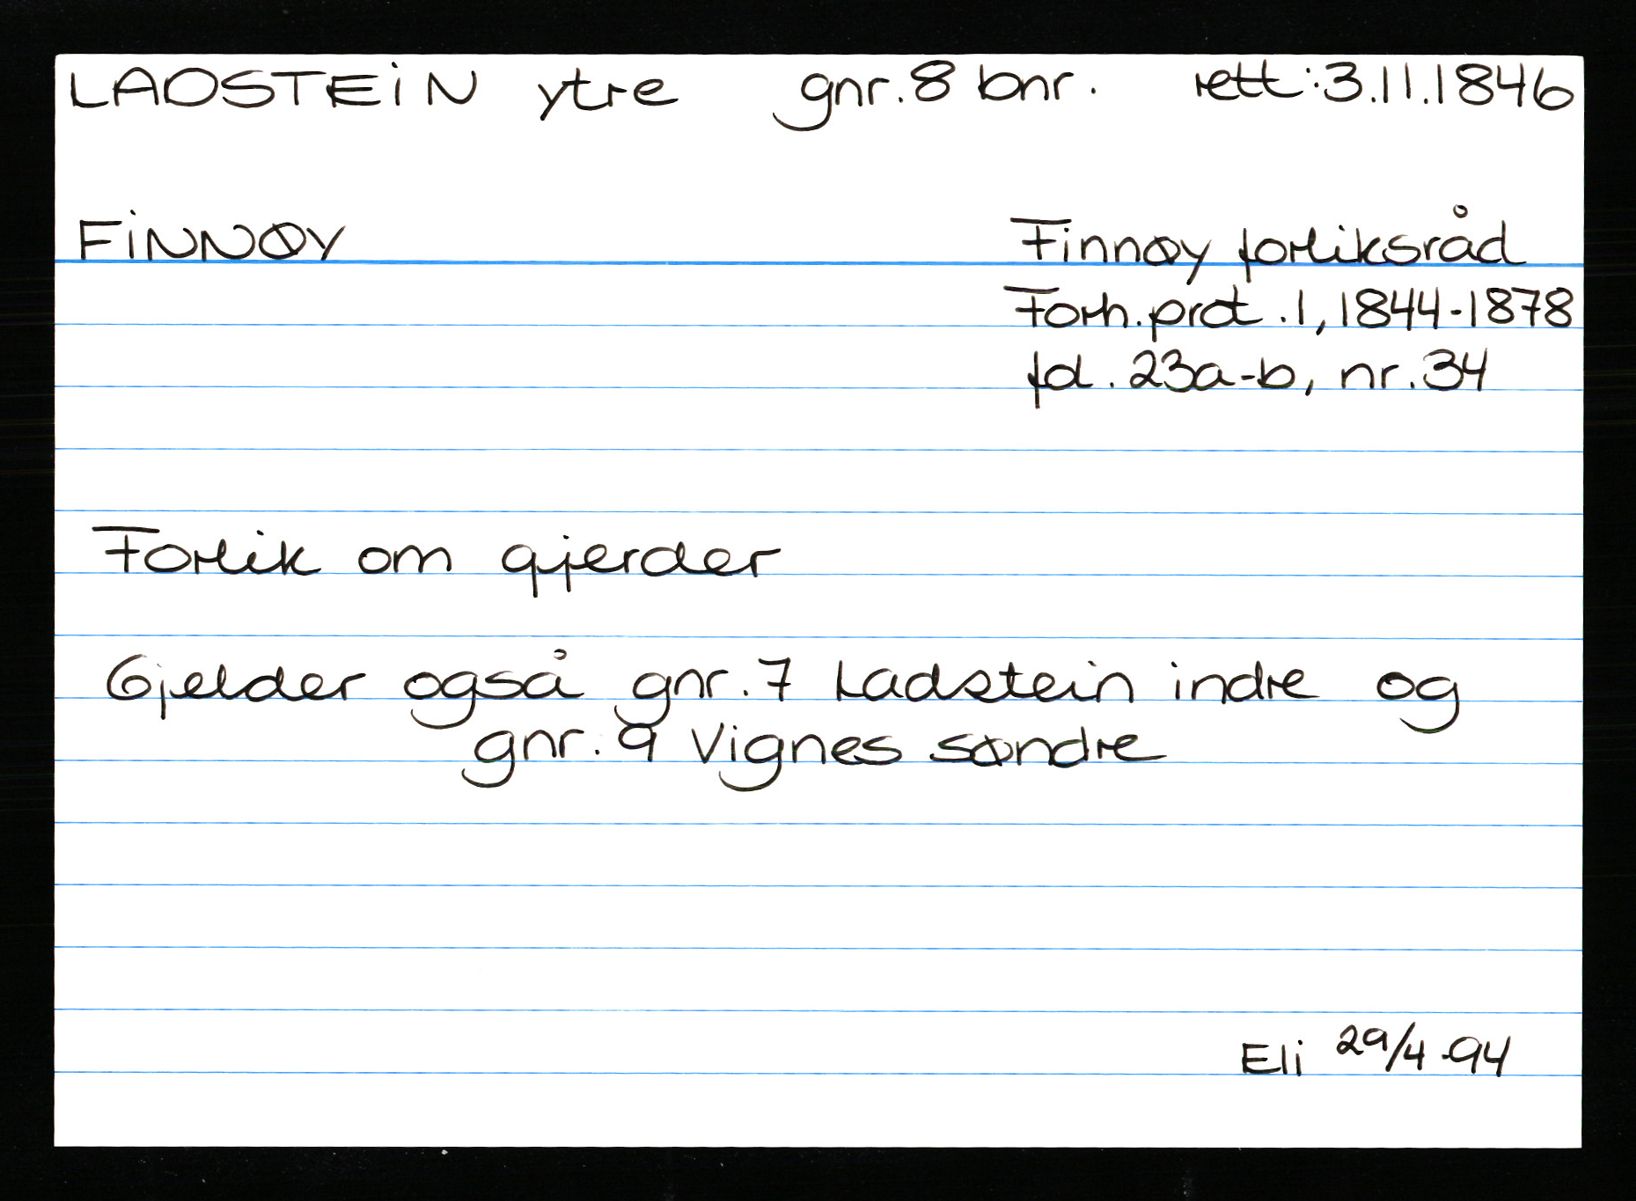 LADSTEIN ytre gnr. 8 bnr. rett: 3.11.1846
FINNØY Finnøy forliksråd
Forh.prot. 1, 1844-1878
fol. 23a-b, nr. 34
Forlik om gjerder
Gjelder også gnr. 7 Ladstein indre og
gnr. 9 Vignes søndre
Eli 29/4-94